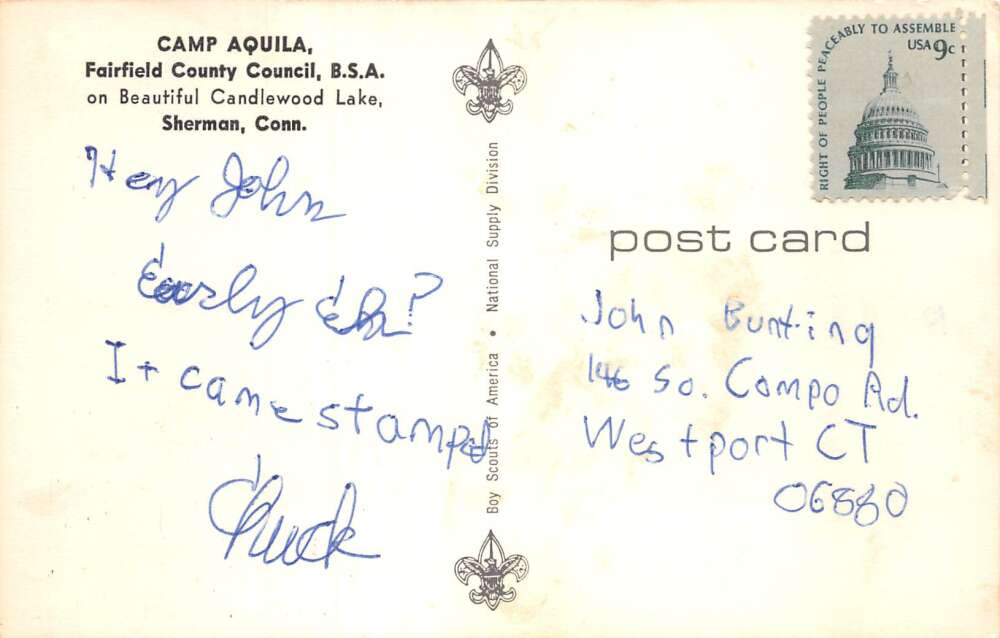 CAMP AQUILA,
Fairfield County Council, B.S.A.
on Beautiful Candlewood Lake,
Sherman, Conn.
Hey John
Early Eh?
It came stamped
Chuck
Boy Scouts of America • National Supply Division
RIGHT OF PEOPLE PEACEABLY TO ASSEMBLE
USA 9c
post card
John Bunting
146 So. Compo Rd.
Westport CT
06880